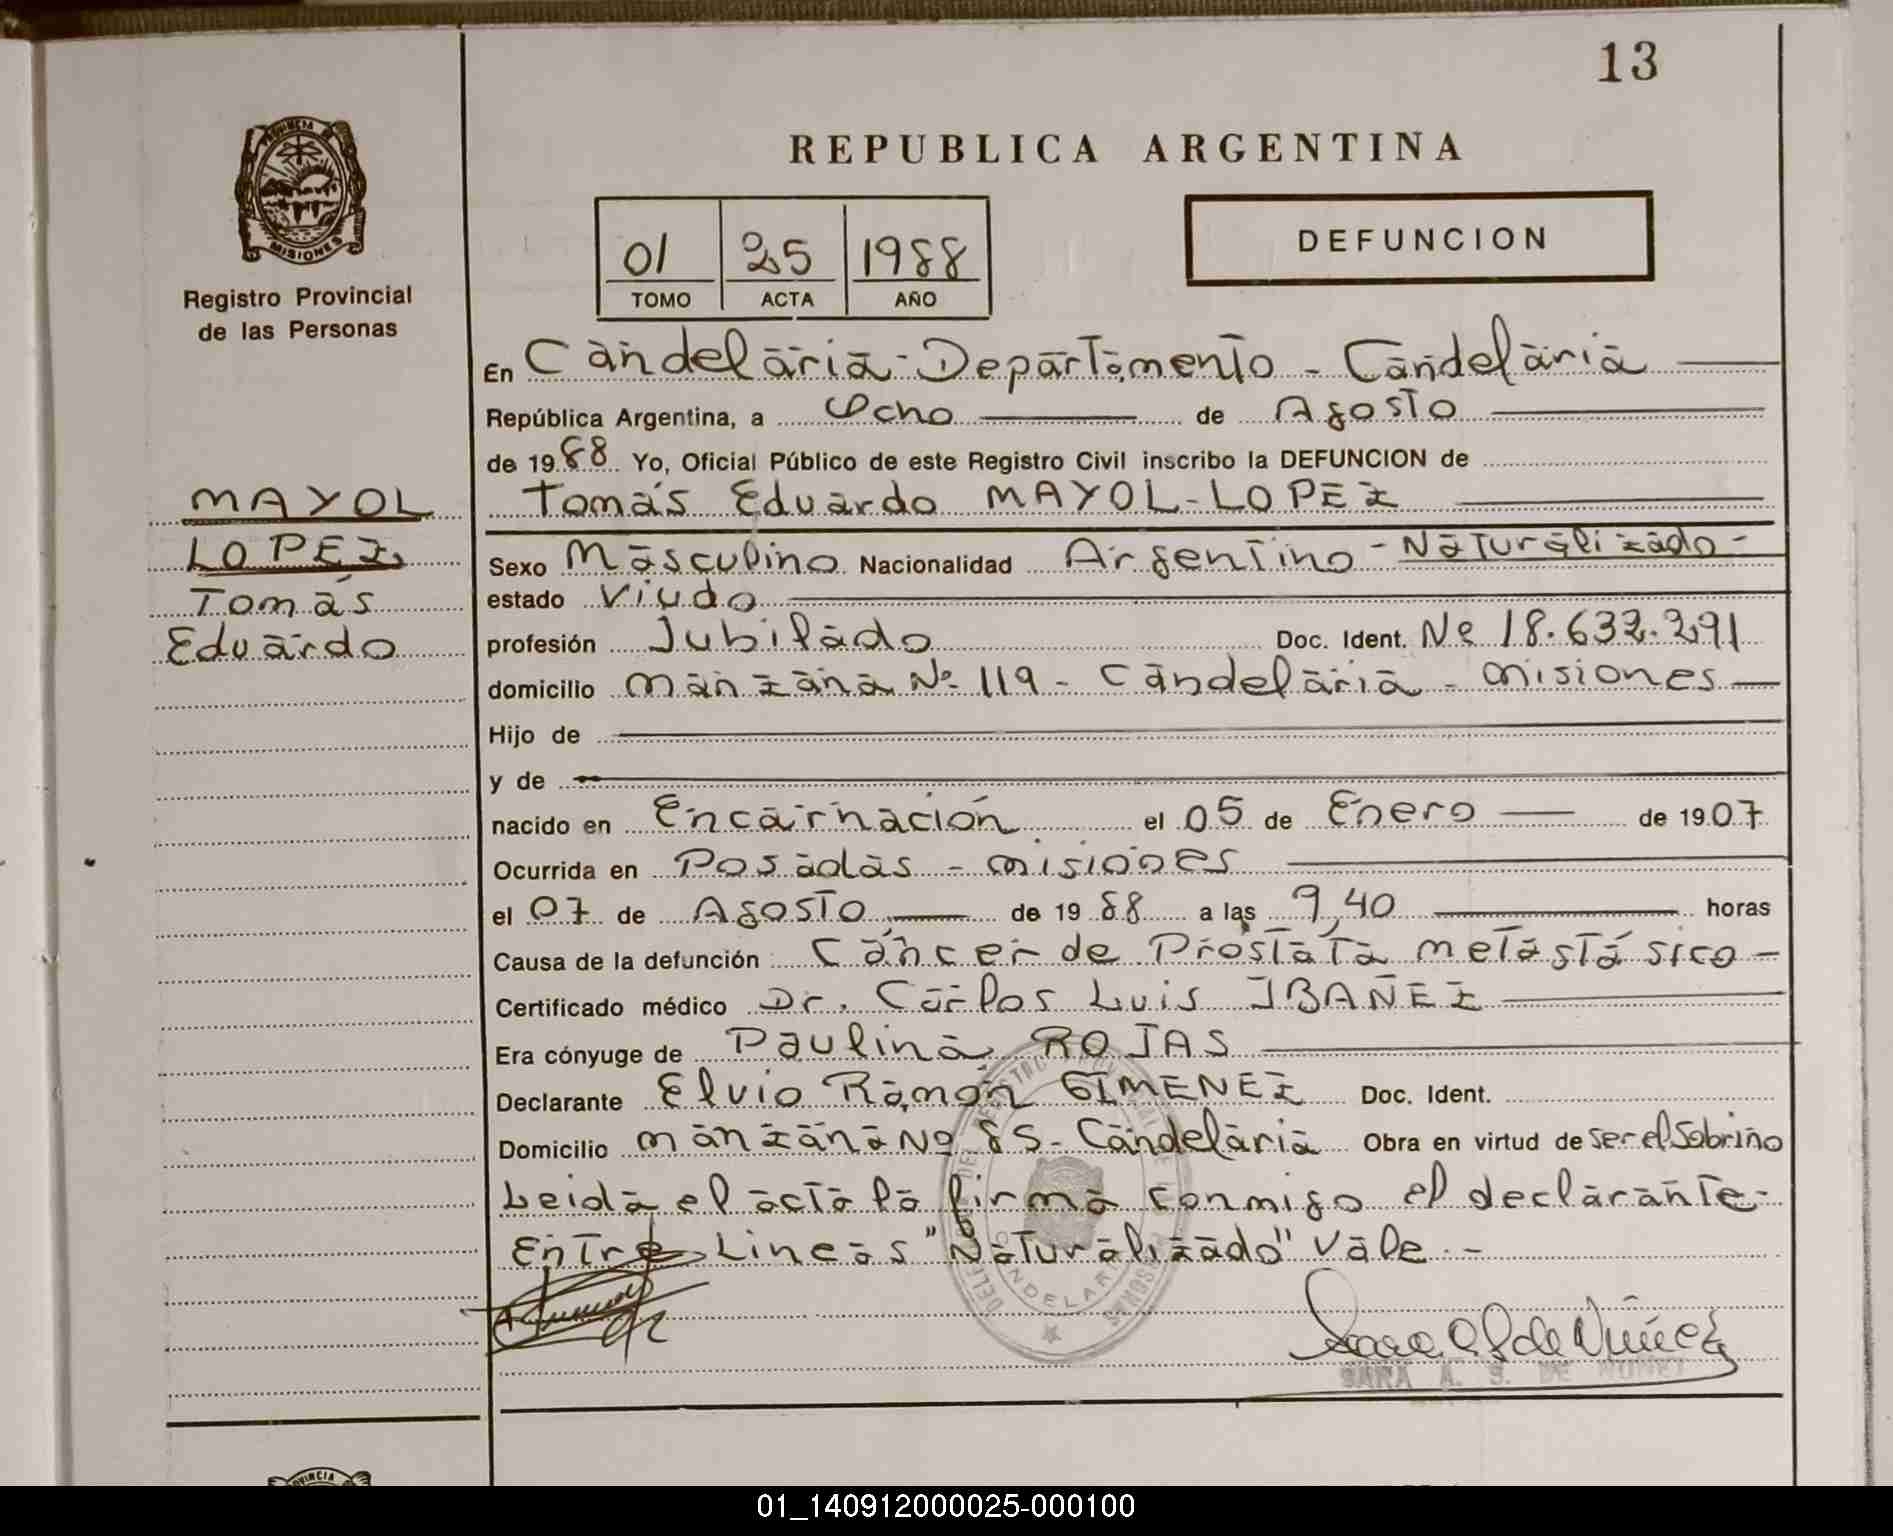 13
PROVINCIA DE
MISIONES
Registro Provincial
de las Personas
REPUBLICA ARGENTINA
01 25 1988
TOMO ACTA AÑO
DEFUNCION
En Candelaria - Departamento - Candelaria
República Argentina, a Ocho de Agosto
de 1988 Yo, Oficial Público de este Registro Civil inscribo la DEFUNCION de
Tomás Eduardo MAYOL-LOPEZ
MAYOL
LOPEZ
Tomás
Eduardo
Sexo Masculino Nacionalidad Argentino - Naturalizado -
estado Viudo
profesión Jubilado Doc. Ident. Nº 18.632.291
domicilio manzana Nº 119 - Candelaria - Misiones
Hijo de
y de
nacido en Encarnación el 05 de Enero de 1907
Ocurrida en Posadas - Misiones
el 07 de Agosto de 1988 a las 9,40 horas
Causa de la defunción Cáncer de Prostata metastásico -
Certificado médico Dr. Carlos Luis IBAÑEZ
Era cónyuge de Paulina ROJAS
Declarante Elvio Ramón GIMENEZ Doc. Ident.
Domicilio manzana Nº 85 - Candelaria Obra en virtud de ser el Sobrino
Leida el acta la firma conmigo el declarante -
Entre Lineas "Naturalizado" Vale. -
CANDELARIA
SARA A. S. DE NUÑEZ
PROVINCIA
01_140912000025-000100